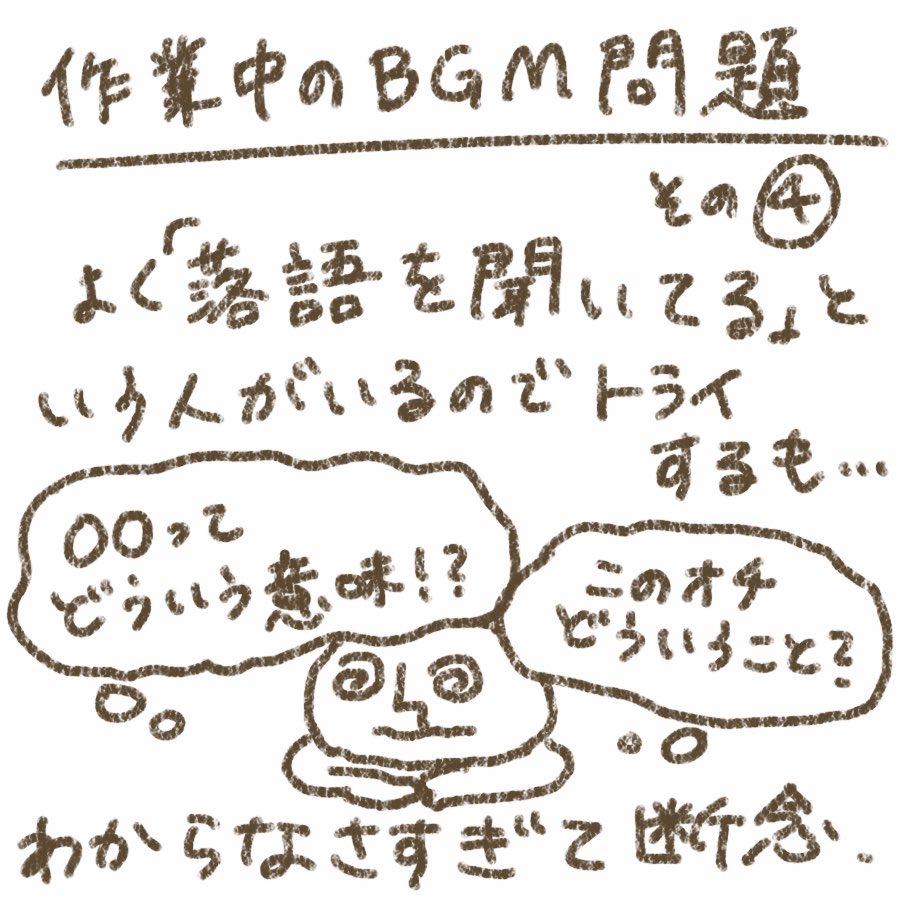 作業中のBGM問題
その④
よく「落語を聞いてる」と
いう人がいるのでトライ
するも…
〇〇って
どういう意味!?
このオチ
どういうこと?
わからなさすぎて断念.